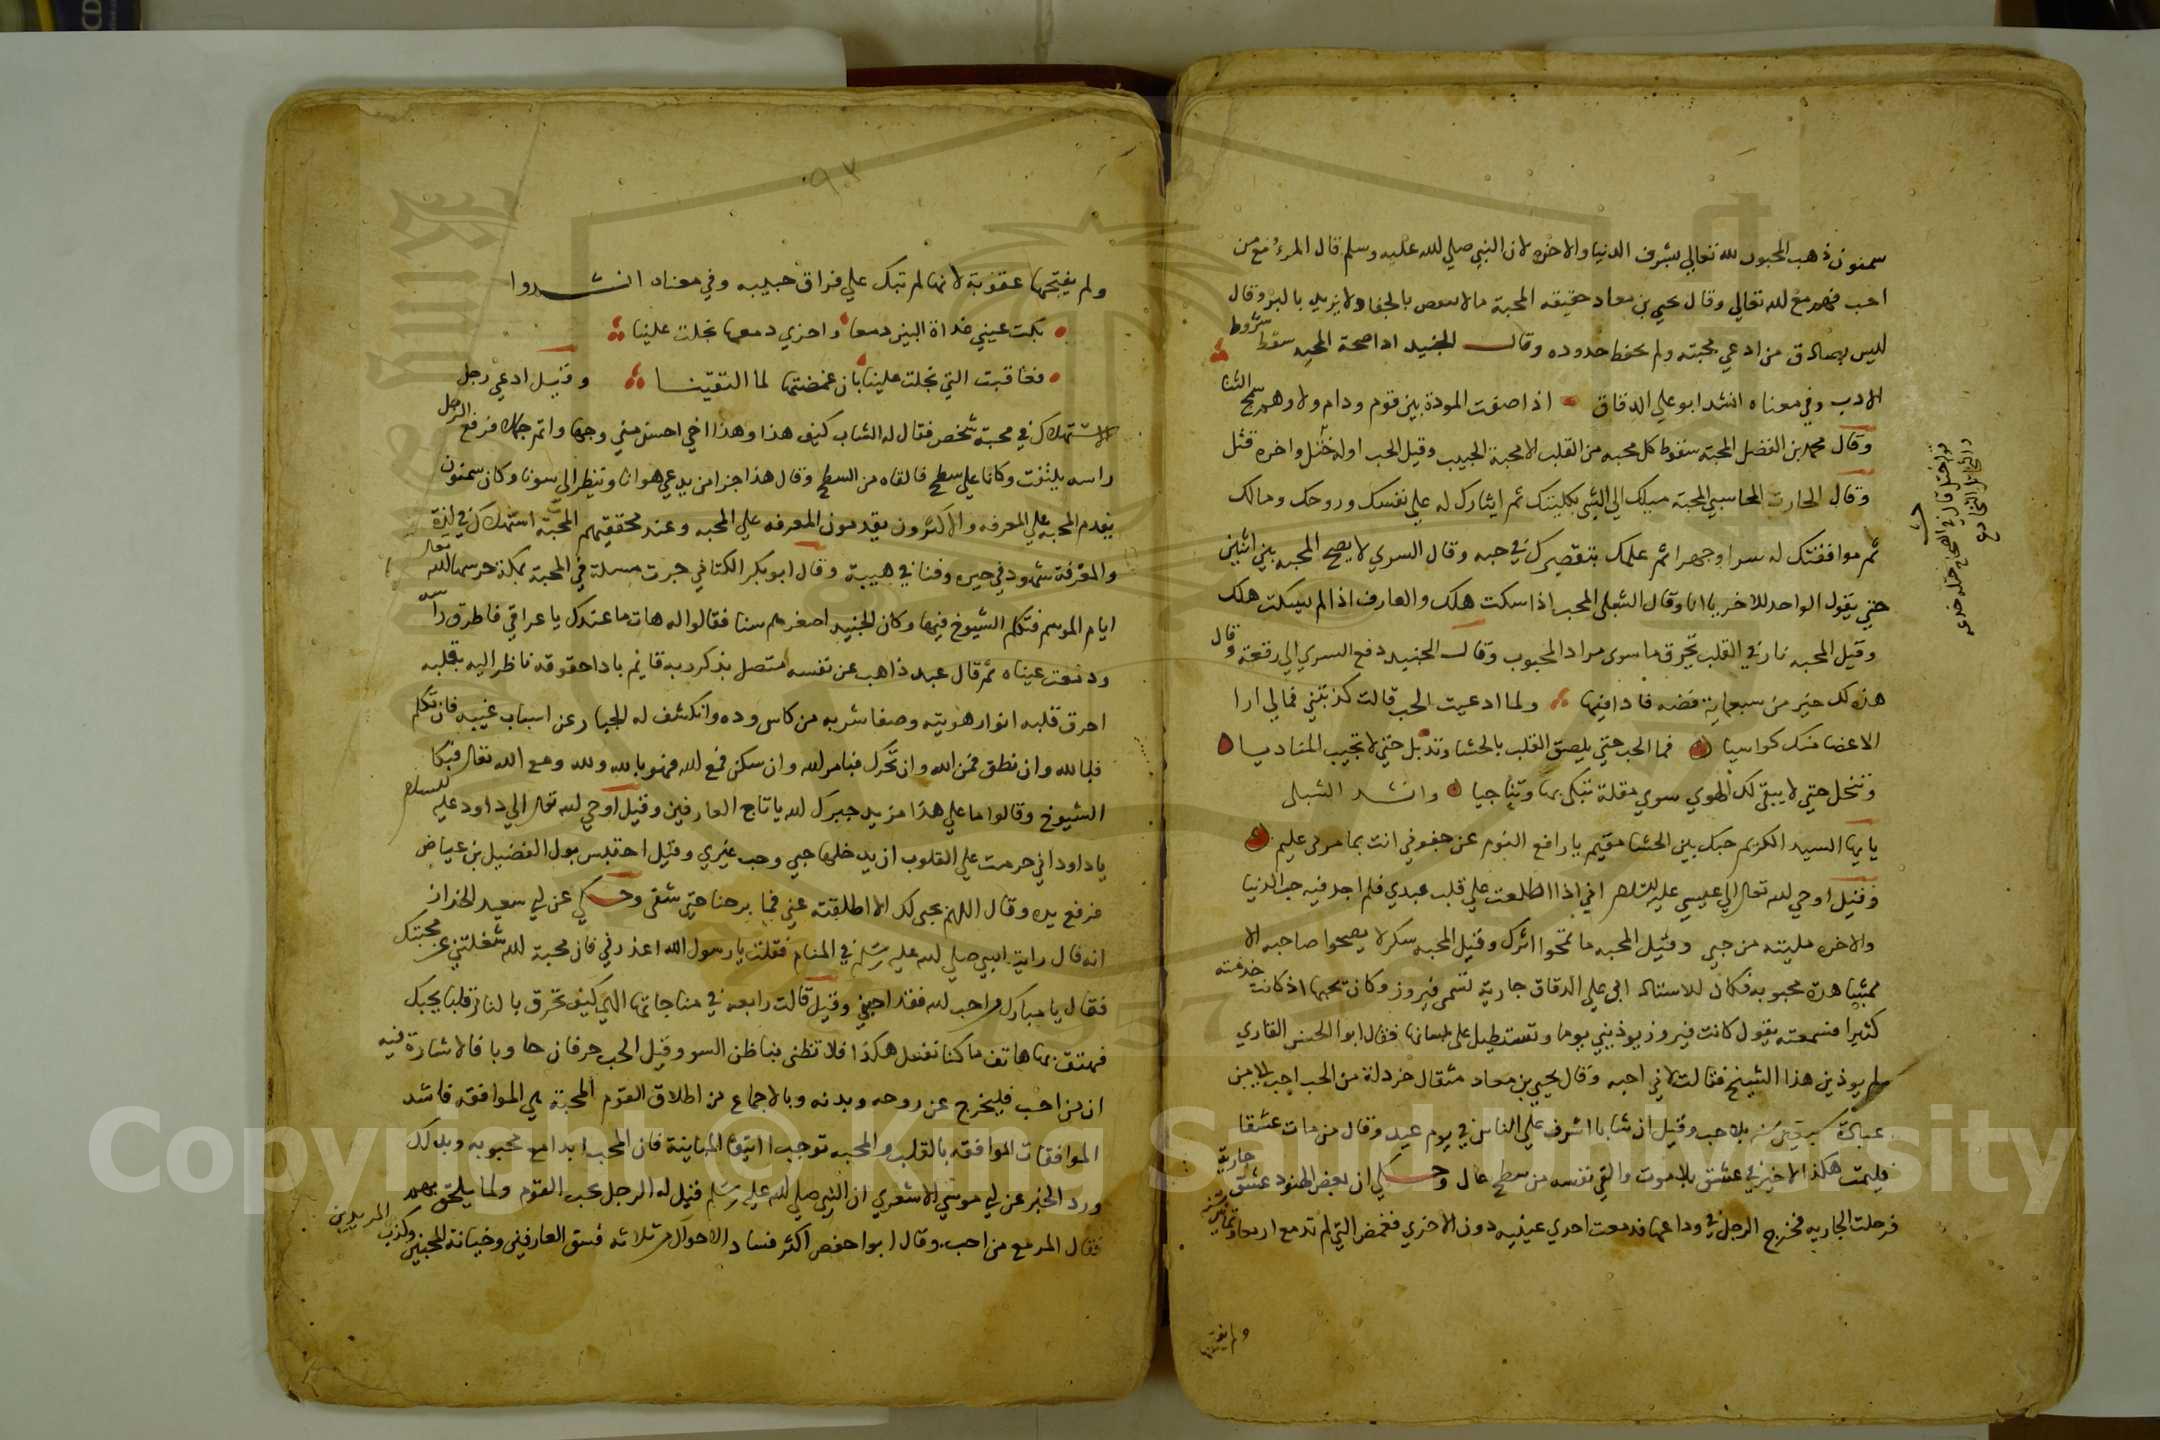 سمنون ذهب المحبون لله تعالى بشرف الدنيا والاخره لان النبي صلي الله عليه وسلم قال المرء مع من
احب فهم مع الله تعالي وقال يحيي بن معاد حقيقه المحبة مالا ينقص بالجفا ولا يزيد بالبر وقال
ليس بصادق من ادعي محبته ولم يحفظ حدوده وقال الجنيد اذا صحة المحبه سقط شروط
الادب وفي معناه انشد ابو علي الدقاق اذا صفت المودة بين قوم ودام ولاوهم سمج الثنا
وقال محمد بن الفضل المحبة سقوط كل محبه من القلب الا محبة الحبيب وقيل الحب اوله ختل واخره قتل
وقال الحارث المحاسبي المحبة ميلك الي الشي بكليتك ثم ايثارك له علي نفسك وروحك ومالك
ثم موافقتك له سرا وجهرا ثم علمك بتقصيرك في حبه وقال السري لا يصح المحبه بين اثنين
حتي يقول الواحد للاخر يا انا وقال الشبلي المحب اذا سكت هلك والعارف اذا لم يسكت هلك
وقيل المحبه نار في القلب تحرق ما سوي مراد المحبوب وقال الجنيد دفع السري الي رقعة وقال
هذه لك خير من سبعماية قصه فاذا فيها ولما ادعيت الحب قالت كذبتني فمالي ارا
الاعضا منك كواسيا فما الحب حتي يلصق القلب بالحشا وتذبل حتي لا تجيب المناديا
وتنحل حتي لا يبقي لك الهوي سوي مقلة تبكي بها وتناجيا وانشد الشبلي
يايها السيد الكريم حبك بين الحشا مقيم يا رافع النوم عن جفوني انت بما مر بي عليم
وقيل اوحي الله تعالى الي عيسي عليه السلام اني اذا اطلعت علي قلب عبدي فلم اجد فيه حب الدنيا
والاخره مليته من حبي وقيل المحبه ما تمحوا اثرك وقيل المحبه سكر لا يصحوا صاحبه الا
بمشاهدة محبوبه فكان للاستاد ابي علي الدقاق جارية تسمي فيروز وكان يحبها اذ كانت خدمته
كثيرا فسمعته يقول كانت فيروز يوذيني يوما وتستطيل علي بلسانها فقال ابو الحسن القاري
لم يوذين هذا الشيخ فقالت لاني احبه وقال يحيي بن معاد مثقال خردلة من الحب احب الي من
عبادة سبعين سنه بلا حب وقيل ان شابا اشرف علي الناس في يوم عيد وقال من مات عشقا
فليمت هكذا لا خير في عشق بلا موت والقي نفسه من سطح عال وحكي ان بعض الهنود عشق جارية
فرحلت الجاريه فخرج الرجل في وداعها فدمعت احدي عينيه دون الاخري فغمض التي لم تدمع اربعا وثمانين سنة
ولم يفتحها
ولم يفتحها عقوبة لانها لم تبك علي فراق حبيبه وفي معناه انشدوا
بكت عيني غداة البين دمعا واخري دمعها بخلت علينا
فعاقبت التي بخلت علينا بان غمضتها لما التقينا وقيل ادعي رجل
الاستهلاك في محبة شخص فقال له الشاب كيف هذا وهذا اخي احسن مني وجها واتم جمالا فرفع الرجل
راسه يلتفت وكانا علي سطح فالقاه من السطح وقال هذا جزا من يدعي هوانا وينظر الي سوانا وكان سمنون
يقدم المحبه علي المعرفه والاكثرون يقدمون المعرفه علي المحبه وعند محققيهم المحبة استهلاك في لذة
والمعرفة شهود في حيره وفنا في هيبة وقال ابو بكر الكتاني جرت مسلة في المحبة بمكة حرسها الله تعالى
ايام الموسم فتكلم الشيوخ فيها وكان الجنيد اصغرهم سنا فقالوا له هات ما عندك يا عراقي فاطرق راسه
ودمعت عيناه ثم قال عبد ذاهب عن نفسه متصل بذكر ربه قايم بادا حقوقه ناظر اليه بقلبه
احرق قلبه انوار هويته وصفا شربه من كاس وده وانكشف له الجبار عن اسباب غيبه فان تكلم
فبالله وان نطق فمن الله وان تحرك فبامر الله وان سكن فمع الله فهو بالله ولله ومع الله تعالى فبكا
الشيوخ وقالوا ما علي هذا مزيد جبرك الله يا تاج العارفين وقيل اوحي الله تعالى الي داود عليه السلام
يا داود اني حرمت علي القلوب ان يدخلها حبي وحب غيري وقيل احتبس بول الفضيل بن عياض
فرفع يده وقال اللهم بحبي لك الا اطلقته عني فما برحنا حتى شفي وحكي عن ابي سعيد الخراز
انه قال رايت النبي صلي الله عليه وسلم في المنام فقلت يا رسول الله اعذرني فان محبة الله شغلتني عن محبتك
فقال يا مبارك من احب الله فقد احبني وقيل قالت رابعه في مناجاتها الهي كيف تحرق بالنار قلبا يحبك
فهتف بها هاتف ما كنا نفعل هكذا فلا تظني بنا ظن السو وقيل الحب حرفان حا وبا فالاشارة فيه
ان من احب فليخرج عن روحه وبدنه وبالاجماع من اطلاق القوم المحبة هي الموافقه فاشد
الموافقات الموافقه بالقلب والمحبه توجب انتفا المباينة فان المحب ابدا مع محبوبه وبذلك
ورد الخبر عن ابي موسي الاشعري ان النبي صلي الله عليه وسلم قيل له الرجل يحب القوم ولما يلحق بهم
فقال المر مع من احب وقال ابوا حفص اكثر فساد الاحوال من ثلاثه فسق العارفين وخيانة المحبين وكذب المريدين